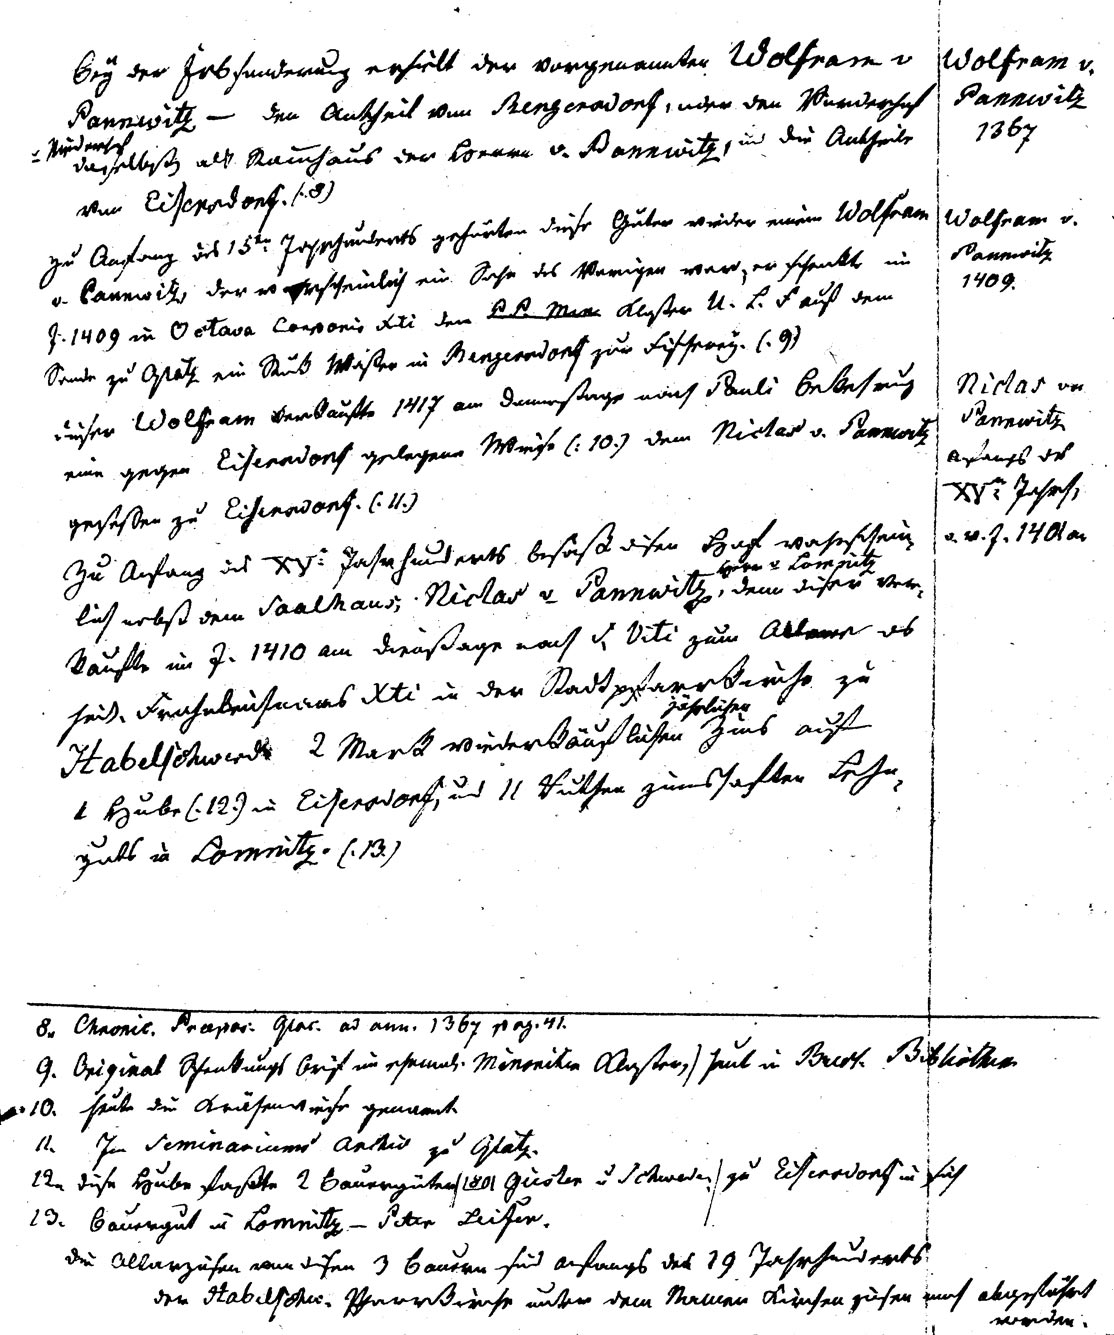 bey der Erbsonderung erhielt der vorgenannten Wolfram v
Pannewitz — den Antheil von Rengersdorf, oder den Vorderhof
u Niederhof
daselbst als Stammhaus der Herren v. Pannewitz, und die Antheile
von Eisersdorf. (:8)
Zu Anfang des 15ten Jahrhunderts gehörten diese Güter wieder einem Wolfram
v. Pannewitz, der wahrscheinlich ein Sohn des Vorigen war, er schenkte im
J. 1409 in Octava Corporis Xti dem Kloster U. L. F auf dem
Sande zu Glatz ein Stük Wasser in Rengersdorf zur Fischerey. (.9)
dieser Wolfram verkaufte 1417 am Donnerstage nach Pauli Bekehrung
eine gegen Eisersdorf gelegene Wiese (:10.) dem Niclas v. Pannewitz
gesessen zu Eisersdorf. (.11.)
Zu Anfang des XVn Jahrhunderts besass disen Hof wahrschein
lich nebst dem Saalhaus, Niclas v Pannewitz, denn diser ver-
Herr v Lomnitz
kaufte im J. 1410 am Dienstage nach S. Viti zum Altare des
heil. Frohnleichnams Xti in der Stadtpfarrkirche zu
Habelschwerdt 2 Mark wiederkäuflichen Zins auf
jährlichen
1 Hube (:12.) in Eisersdorf, und 11 Ruthen zinshaften Lehn-
guts in Lomnitz. (.13.)
Wolfram v.
Pannewitz
1367
Wolfram v.
Pannewitz
1409.
Niclas von
Pannewitz
Anfangs des
XVn Jahrh,
8. Chronic. Praepos. Glac. ad ann. 1367 pag. 41.
9. Original Schenkungs brief im ehemal. Minoriten Kloster,) heut in Bresl. Bibliothek
10. heute die Wiese genannt
11. Im Seminariums Archiv zu Glatz.
12. diese Hube fasste 2 Bauergüter (1801 u Schwede) zu Eisersdorf in sich
13. Bauergut in Lomnitz — Peter
die Altarzinsen von disen 3 Bauern sind anfangs des 19 Jahrhunderts
der Habelschw. Pfarrkirche unter dem Namen Kirchen zinsen noch abgeführt
worden.